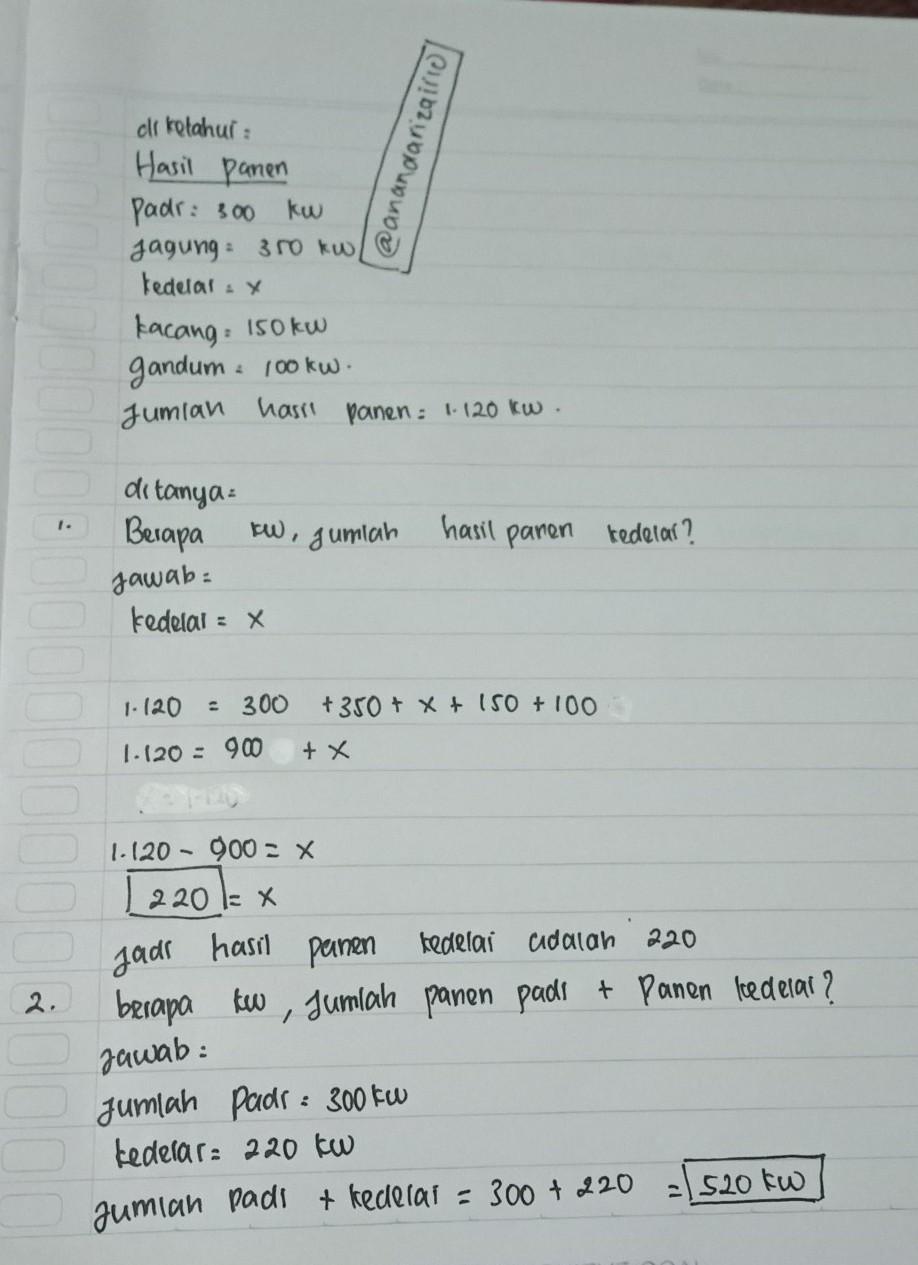 diketahui :
Hasil panen
Padi : 300 kw
Jagung = 350 kw
kedelai = x
kacang = 150 kw
gandum = 100 kw.
Jumlah hasil panen = 1.120 kw.
@anandarizqirie
ditanya =
1. Berapa kw, jumlah hasil panen kedelai?
Jawab =
kedelai = x
1.120 = 300 + 350 + x + 150 + 100
1.120 = 900 + x
1.120 - 900 = x
220 = x
Jadi hasil panen kedelai adalah 220
2. berapa kw, jumlah panen padi + Panen kedelai?
Jawab :
Jumlah Padi = 300 kw
kedelai = 220 kw
Jumlah padi + kedelai = 300 + 220 = 520 kw